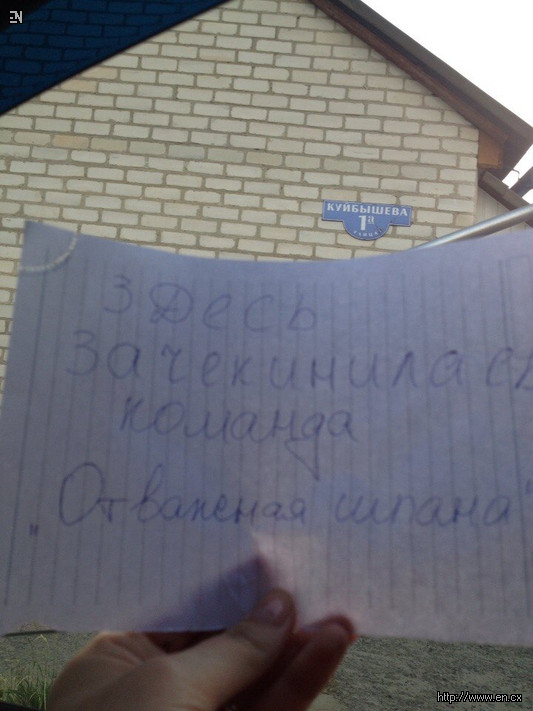 EN
КУЙБЫШЕВА
1а
УЛИЦА
Здесь
Зачекинилась
команда
„Отважная шпана"
http://www.en.cx